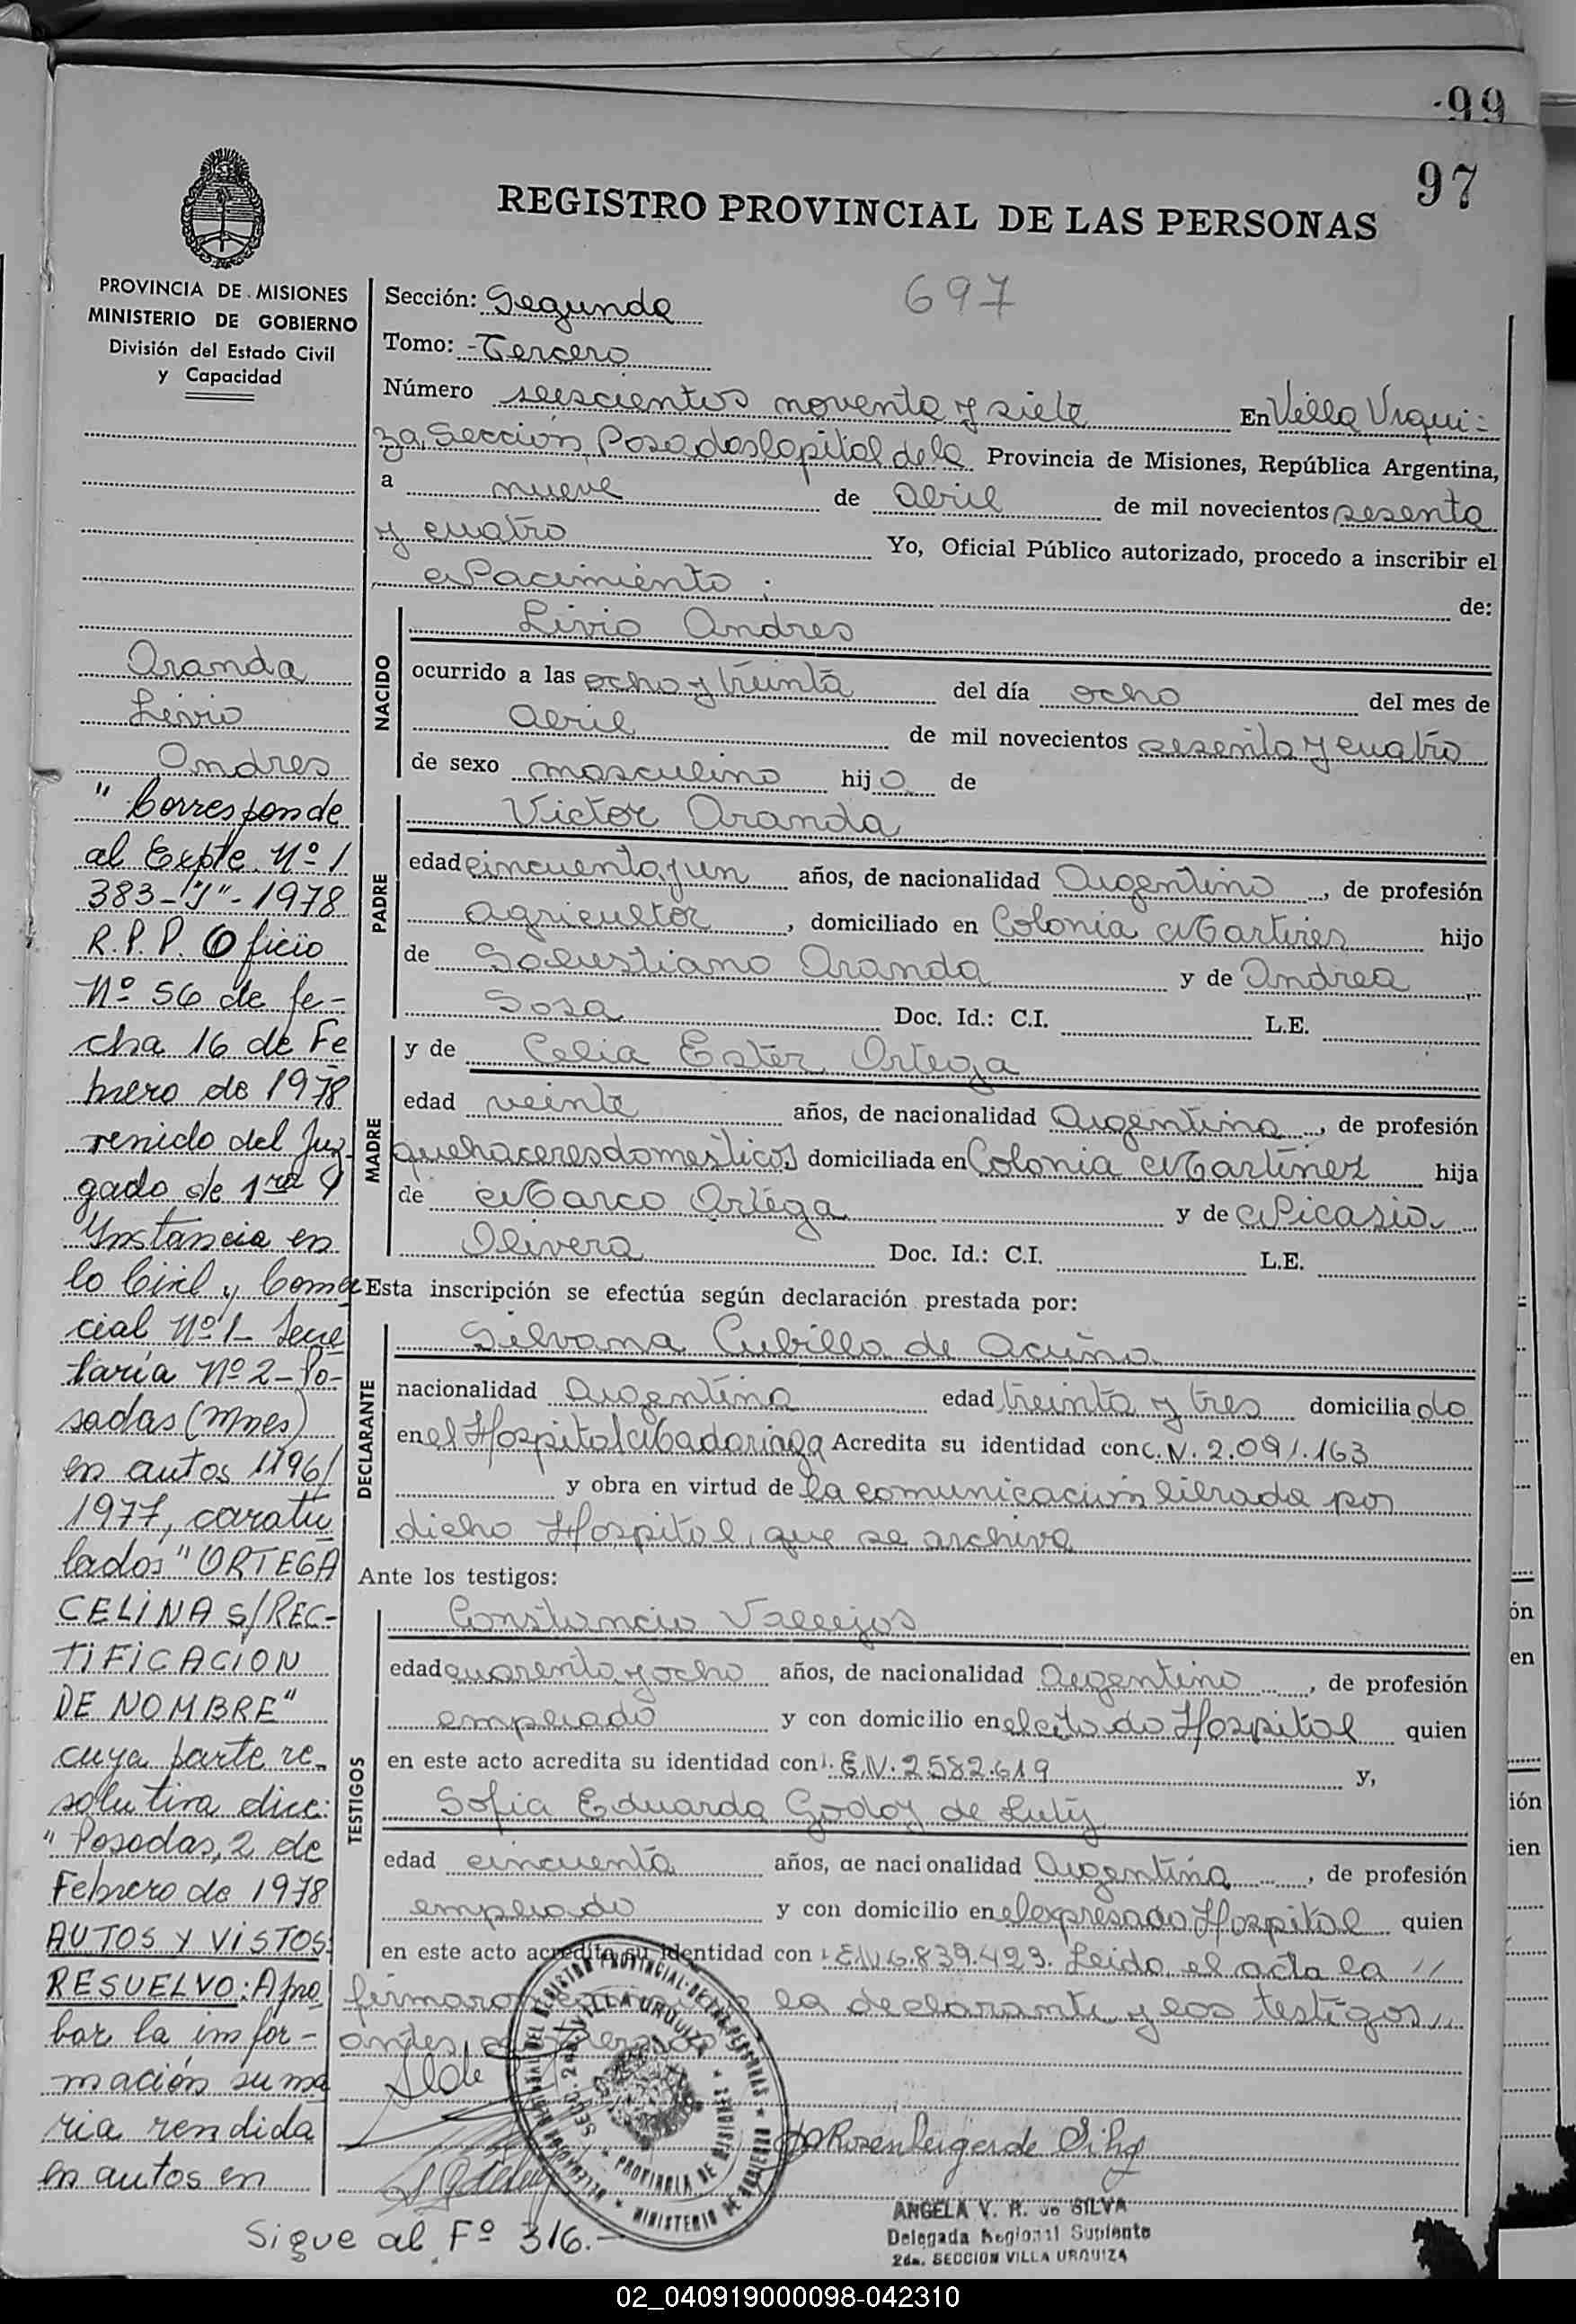 99
97
REGISTRO PROVINCIAL DE LAS PERSONAS
697
PROVINCIA DE MISIONES
MINISTERIO DE GOBIERNO
División del Estado Civil
y Capacidad
Aranda
Livio
Andres
" Corresponde
al Expte. Nº 1
383-"J"-1978
R.P.P. Oficio
Nº 56 de fe-
cha 16 de Fe
brero de 1978
renido del Juz
gado de 1ra
Instancia en
lo Civil y Comer
cial Nº 1- Secre
taría Nº 2-Po-
sadas (Mnes)
en autos 1196/
1977, caratu
lados "ORTEGA
CELINA S/REC-
TIFICACION
DE NOMBRE"
cuya parte re-
solutiva dice:
"Posadas, 2 de
Febrero de 1978
AUTOS Y VISTOS:
RESUELVO: Apro
bar la infor-
mación suma
ria rendida
en autos en
Sección: Segunda
Tomo: - Tercero
Número seiscientos noventa y siete En Villa Urqui-
za, Sección, Posadas Capital de la Provincia de Misiones, República Argentina,
a nueve de Abril de mil novecientos sesenta
y cuatro Yo, Oficial Público autorizado, procedo a inscribir el
Nacimiento: de:
NACIDO
Livio Andres
ocurrido a las ocho y treinta del día ocho del mes de
Abril de mil novecientos sesenta y cuatro
de sexo masculino hijo de
PADRE
Victor Aranda
edad cincuenta y un años, de nacionalidad Argentino, de profesión
agricultor, domiciliado en Colonia Martires hijo
de Salustiano Aranda y de Andrea
Sosa Doc. Id.: C.I. L.E.
MADRE
y de Celia Ester Ortega
edad veinte años, de nacionalidad Argentina, de profesión
quehaceres domesticos domiciliada en Colonia Martinez hija
de Marco Ortega y de Nicasia
Olivera Doc. Id.: C.I. L.E.
Esta inscripción se efectúa según declaración prestada por:
DECLARANTE
Silvana Cubilla de Acuña
nacionalidad Argentina edad treinta y tres domiciliado
en el Hospital Madariaga Acredita su identidad con C. N. 2.091.163
y obra en virtud de la comunicación librada por
dicho Hospital, que se archiva
Ante los testigos:
TESTIGOS
Constancio Vallejos
edad cuarenta y ocho años, de nacionalidad Argentino, de profesión
empleado y con domicilio en el citado Hospital quien
en este acto acredita su identidad con L. E. N. 2.582.619 y,
Sofia Eduarda Godoy de
edad cincuenta años, de nacionalidad Argentina, de profesión
empleado y con domicilio en el expresado Hospital quien
en este acto acredita su identidad con L.E. N. 6.839.423. Leido el acta la //
firmaron la declarante y los testigos //
antes
VILLA URQUIZA
PROVINCIA DE MISIONES
MINISTERIO DE GOBIERNO
ANGELA V. R. de SILVA
Delegada Regional Suplente
2da. SECCION VILLA URQUIZA
Sigue al Fº 316.-
ón
en
ión
ien
02_040919000098-042310